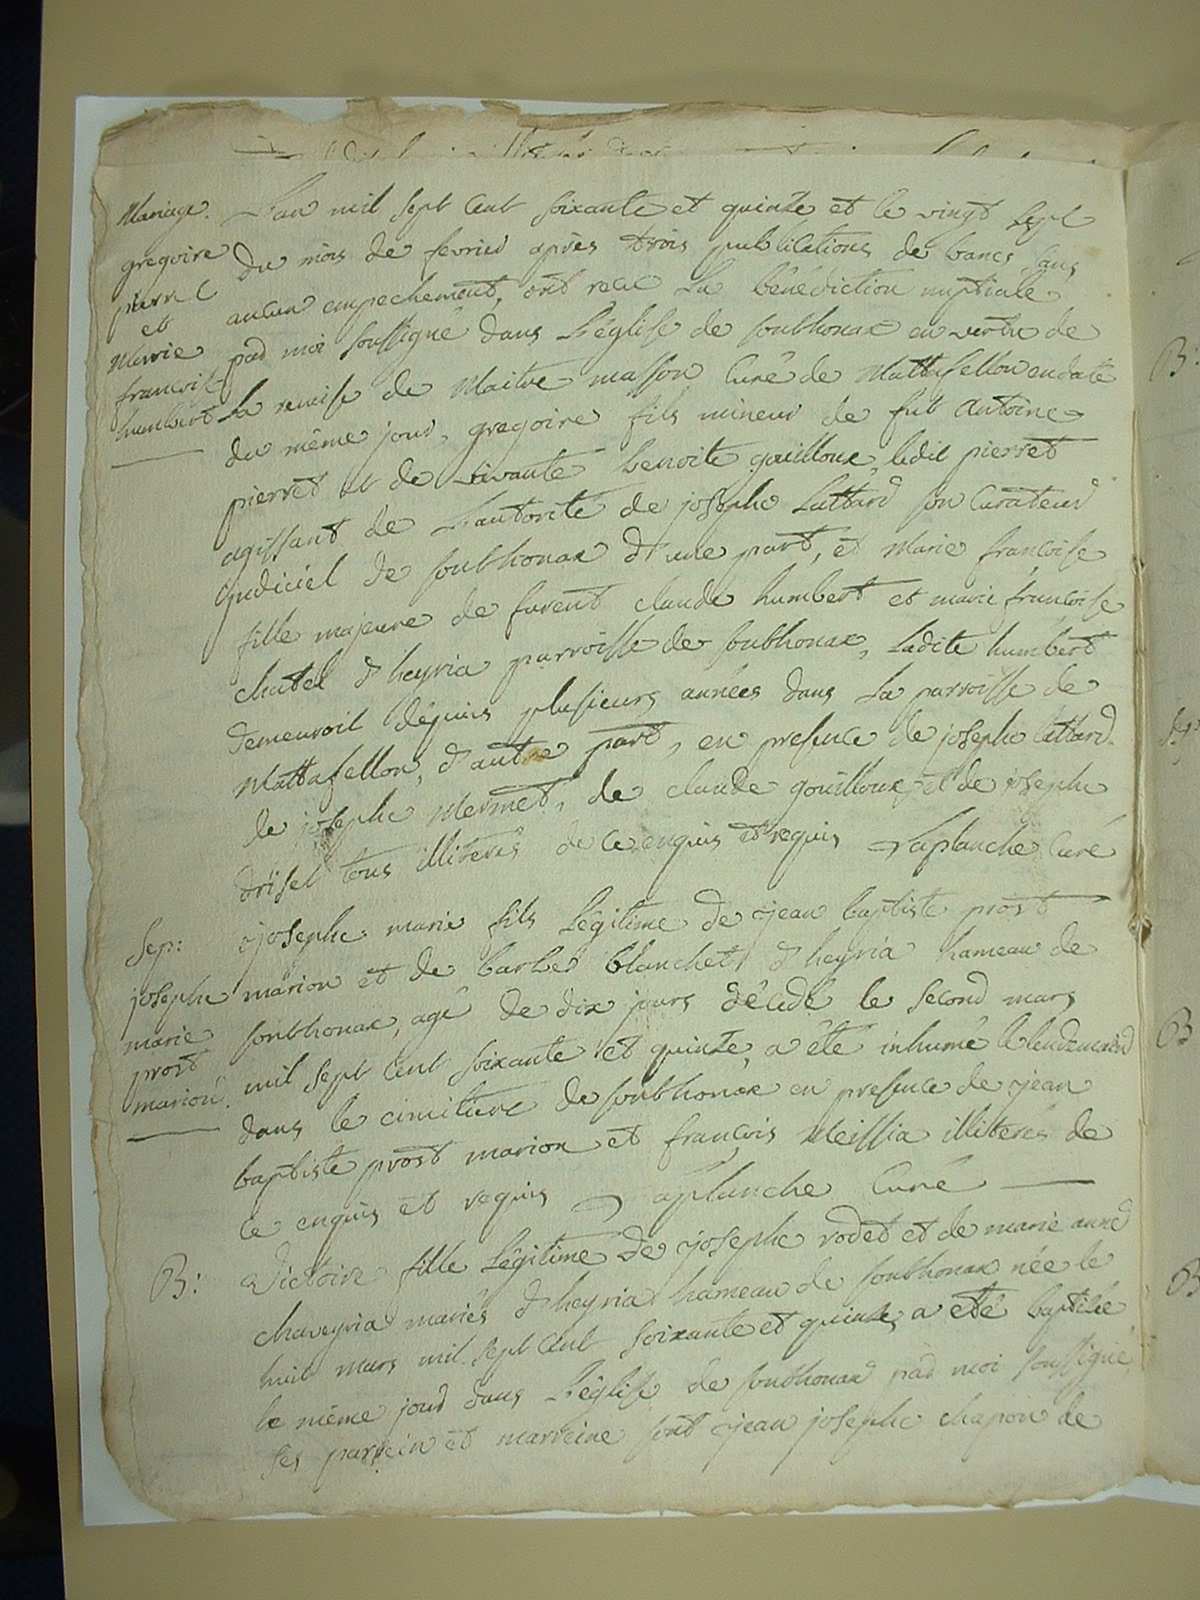 Mariage.
gregoire
pierret
et
Marie
françoise
humbert
L'an mil sept cent soixante et quinze et le vingt sept
du mois de fevrier après trois publications de bancs sans
aucun empechement, ont recu La bénédiction nuptiale
par moi soussigné dans L'église de sonthonax en vertu de
La remise de Maitre masson Curé de Mattafellon en date
du même jour, gregoire fils mineur de fut Antoine
pierret et de vivante benoite gouilloux, ledit pierret
agissant de L'autorité de josephe Lattard son Curateur
judiciel de sonthonax d'une part, et Marie françoise
fille majeure de furent claude humbert et marie françoise
chatel d'heyria parroisse de sonthonax, Ladite humbert
demeuroit dépuis plusieurs années dans La parroisse de
Mattafellon, d'autre part, en presence de josephe lattard
de josephe Mermet, de claude gouilloux et de josephe
tous illiterés de ce enquis et requis Laplanche Curé
Sep:
josephe
marie
prost
marion.
josephe marie fils Légitime de jean baptiste prost
marion et de barbe blanchet d'heyria hameau de
sonthonax, agé de dix jours décedé le second mars
mil sept Cent soixante et quinze, a été inhumé le lendemain
dans le cimitiere de sonthonax en presence de jean
baptiste prost marion et françois Meissia illiterés de
ce enquis et requis Laplanche Curé
B:
Victoire fille Légitime de josephe rodet et de marie anne
chaveyria mariés d'heyria hameau de sonthonax née le
huit mars mil sept Cent soixante et quinze a été baptisée
le même jour dans L'église de sonthonax par moi soussigné
ses parrein et marreine sont jean josephe chapon de
B:
Sep:
B
B